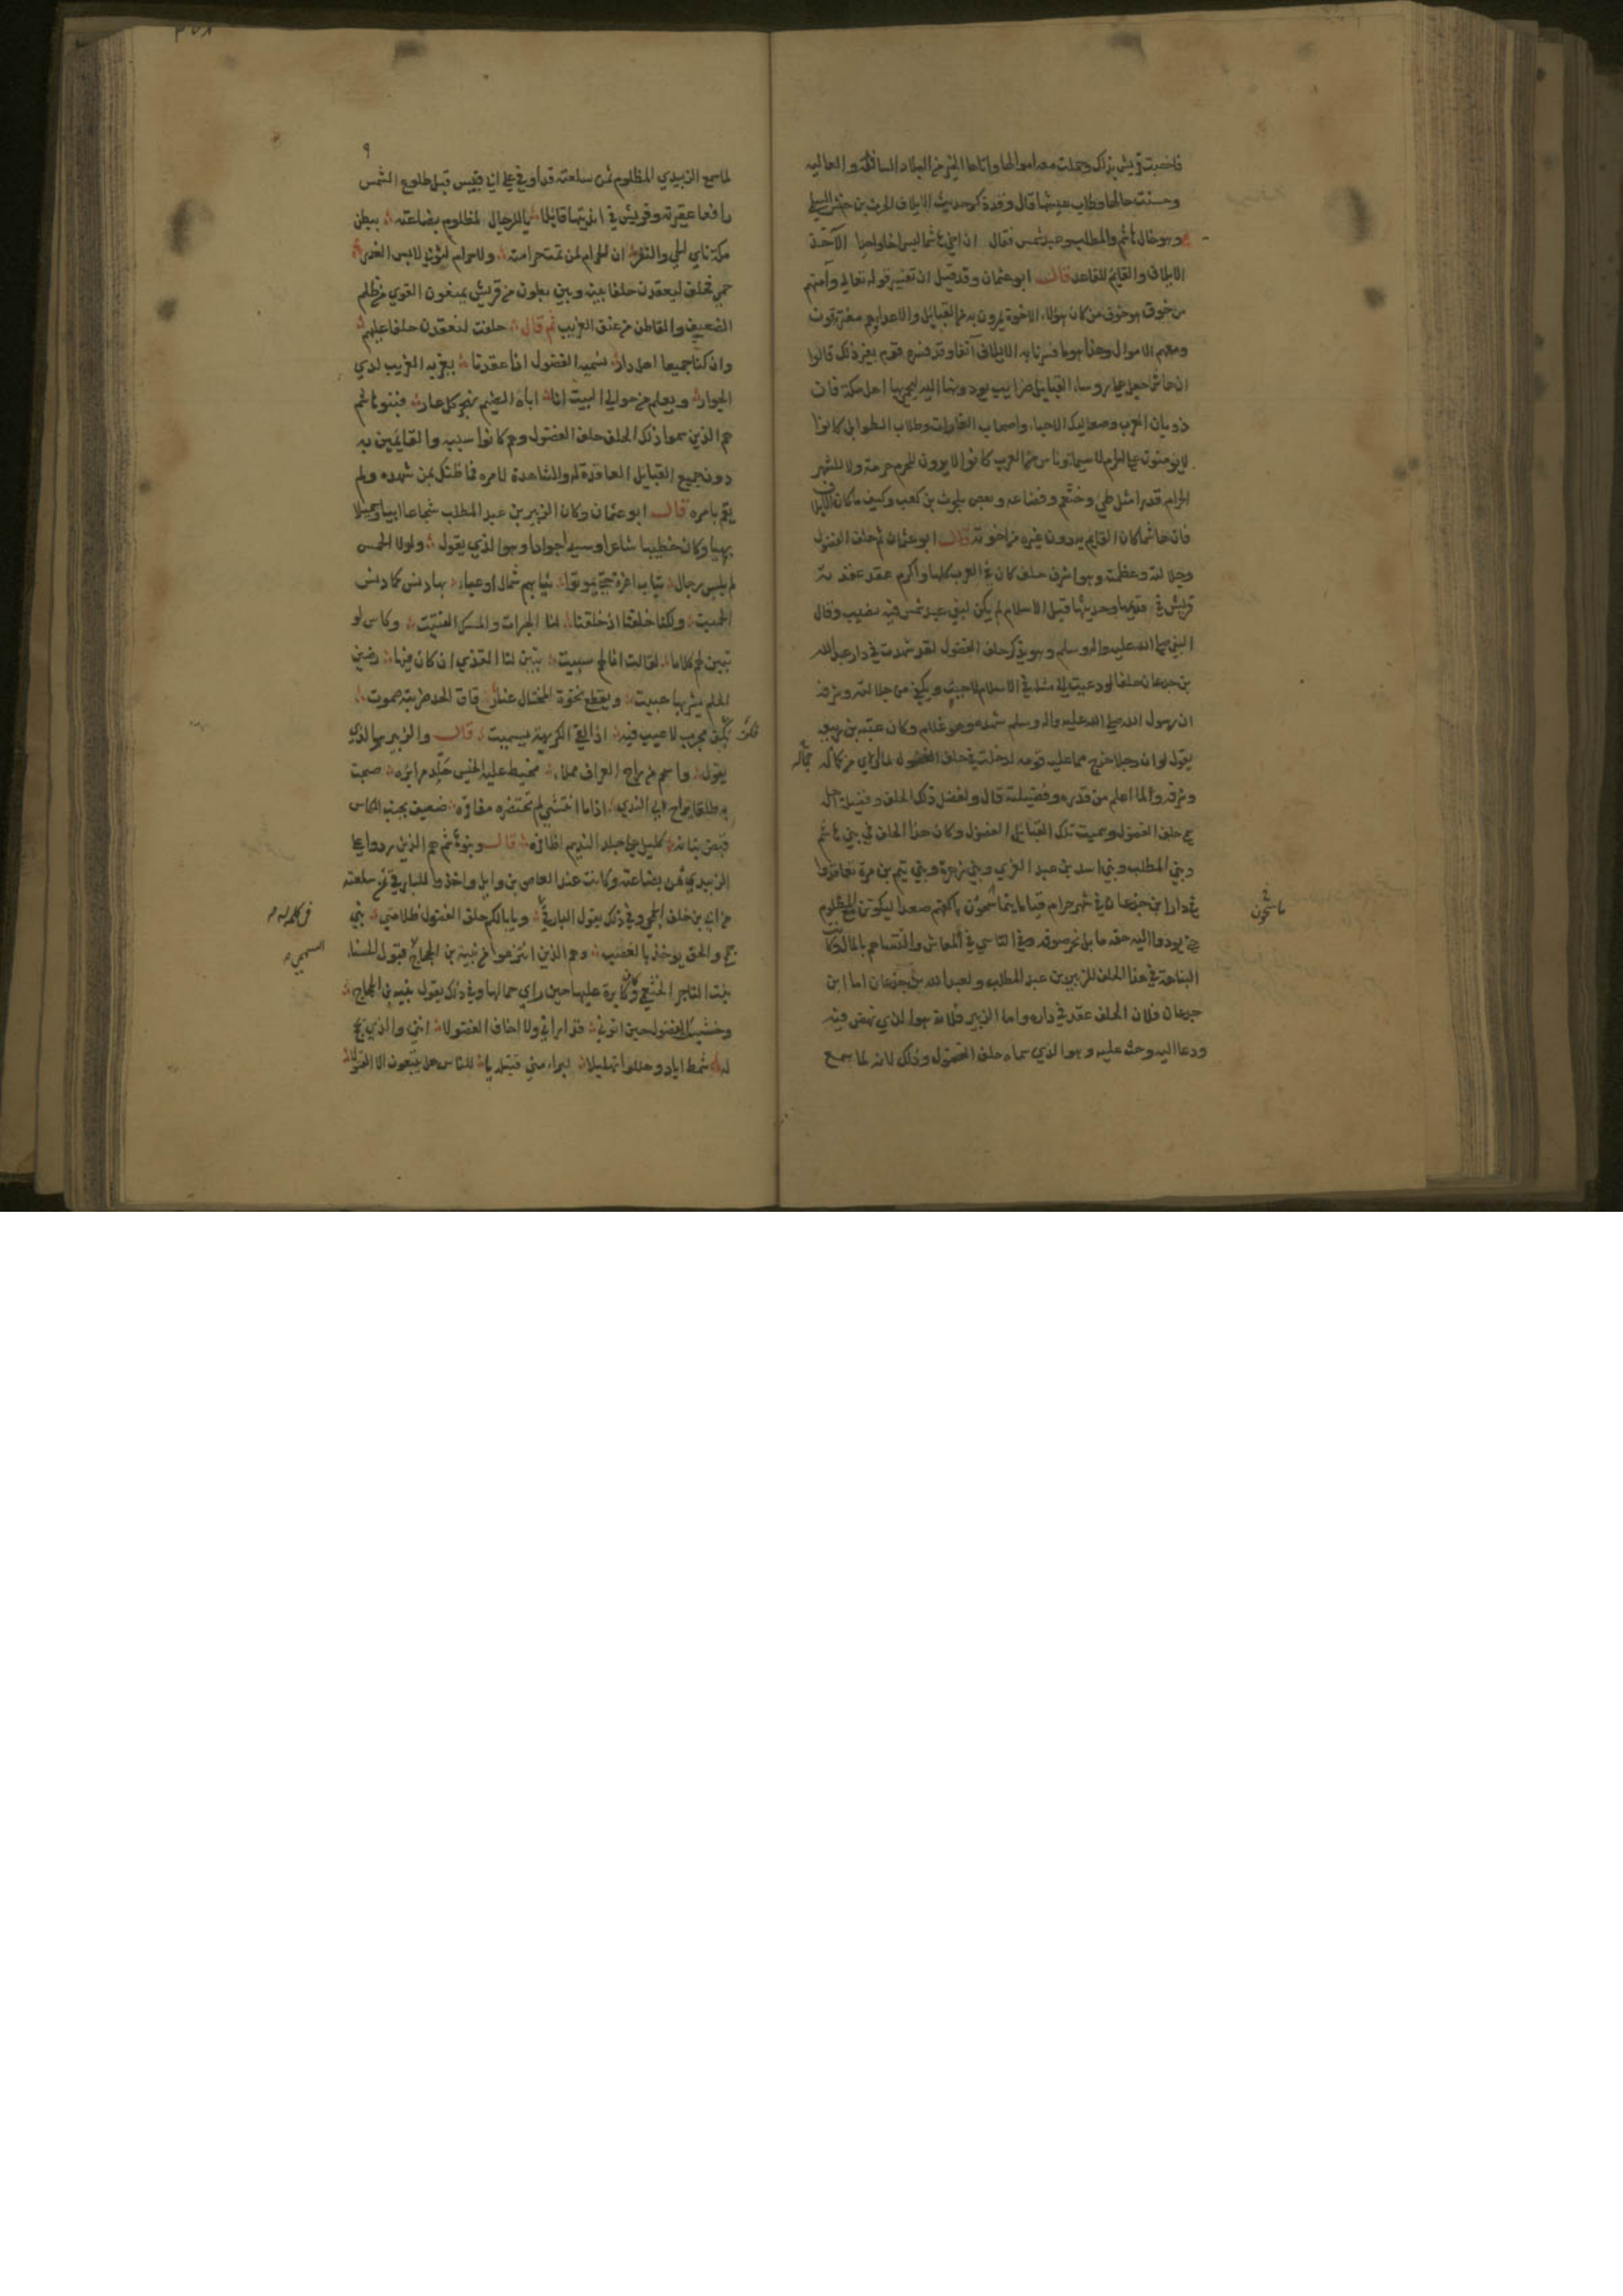 فاخصبت قريش بذلك وحملت معه اموالها واتاها الخير من البلاد السافلة والعاليه
وحسنت حالها وطاب عيشها قال وقد ذكر حديث الايلاف الحرث بن حنش السلمي
وهو خال هاشم والمطلب وعبد شمس فقال ان اخي هاشما ليس اخا واحدا الآخذ
الايلاف والقايم للقاعد قال ابو عثمان وقد قيل ان تفسير قوله تعالى وآمنهم
من خوف هو خوف من كان هؤلاء الاخوة يمرون به من القبايل والاعداء وهم مغتربون
ومعهم الاموال وهذا هو ما فسرنا به الايلاف آنفا وقد فسره قوم بغير ذلك قالوا
ان هاشما جعل على روساء القبايل ضرايب يودونها اليه ليحمي بها اهل مكة فان
ذوبان العرب وصعاليك الاحياء واصحاب الغارات وطلاب الطوايل كانوا
لا يومنون على الحرم لا سيما وناس من العرب كانوا لا يرون للحرم حرمة ولا للشهر
الحرام قدرا مثل طي وخثعم وقضاعه وبعض بلحرث بن كعب وكيف ما كان الايلاف
فان هاشما كان القايم به دون غيره من اخوته قال ابو عثمان ثم حلف الفضول
وجلالته وعظمته وهو اشرف حلف كان في العرب كلها واكرم عقد عقدته
قريش في قديمها وحديثها قبل الاسلام لم يكن لبني عبد شمس فيه نصيب وقال
النبي صلى الله عليه واله وسلم وهو يذكر حلف الفضول لقد شهدت في دار عبد الله
بن جدعان حلفا لو دعيت الى مثله في الاسلام لاجبت ويكفي من جلالته وشرفه
ان رسول الله صلى الله عليه واله وسلم شهده وهو غلام وكان عتبه بن ربيعه
يقول لو ان رجلا خرج مما عليه قومه لدخلت في حلف الفضول لما ارى من كماله
وشرفه ولما اعلم من قدره وفضيلته قال ولفضل ذلك الحلف وفضيلة اهله
سمي حلف الفضول وسميت تلك القبايل الفضول وكان هذا الحلف في بني هاشم
وبني المطلب وبني اسد بن عبد العزى وبني زهرة وبني تيم بن مرة تعاقدوا
في دار ابن جدعان في شهر حرام قياما يتماسحون باكفهم صعدا ليكونن مع المظلوم
حتى يودوا اليه حقه ما بل بحر صوفه وفي التاسي في المعاش والتساهم بالمال وكانت
النباهة في هذا الحلف للزبير بن عبد المطلب ولعبد الله بن جدعان اما ابن
جدعان فلان الحلف عقد في داره واما الزبير فلانه هو الذي نهض فيه
ودعا اليه وحث عليه وهو الذي سماه حلف الفضول وذلك لانه لما سمع
لما سمع الزبيدي المظلوم ثمن سلعته قد اوفى على ابي قبيس قبل طلوع الشمس
رافعا عقيرته وقريش في انديتها قايلا يا للرجال لمظلوم بضاعته ببطن
مكة ناي الحي والنفر ان الحرام لمن تمت حرامته ولا حرام لثوبي لابس الغدر
حمي فحلف ليعقدن حلفا بينه وبين بطون من قريش يمنعون القوي من ظلم
الضعيف والقاطن من عنف الغريب ثم قال حلفت لنعقدن حلفا عليهم
وان كنا جميعا اهل دار نسميه الفضول اذا عقدنا يعز به الغريب لدى
الجوار ويعلم من حوالي البيت انا اباة الضيم نهجر كل عار فبنو هاشم
هم الذين سموا ذلك الحلف حلف الفضول وهم كانوا سببه والقايمين به
دون جميع القبايل العاقدة له والشاهدة لامره فما ظنك بمن شهده ولم
يقم بامره قال ابو عثمان وكان الزبير بن عبد المطلب شجاعا ابيا وجميلا
بهيا وكان خطيبا شاعرا وسيدا جوادا وهو الذي يقول ولولا الحمس
لم يلبس رجال ثياب اعزة حتى يموتوا ثيابهم شمال او عباء بها دنس كما دنس
الحميت ولكنا خلقنا اذ خلقنا لنا الحبرات والمسك الفتيت وكاس لو
تبين لهم كلاما لقالت انما لهم سبيت تبين لنا القذى ان كان فيها رضين
الحلم يشربها هبيت ويقطع نخوة المختال عنا رقاق الحد ضربته صموت
بكف مجرب لا عيب فيه اذا لقي الكريهة يستميت قال والزبير هو الذي
يقول واسحم من راح العراق مملاء محيط عليه الخيش جلد مرائره صبحت
به طلقا يراح الى الندى اذا ما انتشى لم تحتضره مفاقره ضعيف بجنب الكاس
قبض بنانه كليل على جلد النديم اظافره قال وبنو هاشم هم الذين ردوا على
الزبيدي ثمن بضاعته وكانت عند العاص بن وايل واخذوا للبارقي ثمن سلعته
من ابي بن خلف الجمحي وفي ذلك يقول البارقي ويابى لكم حلف الفضول ظلامتي بني
جمح والحق يوخذ بالغضب وهم الذين انتزعوا من نبيه بن الحجاج قتول الحسناء
بنت التاجر الخثعمي وكان كابره عليها حين راى جمالها وفي ذلك يقول نبيه بن الحجاج
وخشيت الفضول حين اتوني قد اراني ولا اخاف الفضولا اني والذي يحج
له شمط اياد وهللوا تهليلا لبراء مني قتيلة يا للناس هل يتبعون الا القتولا